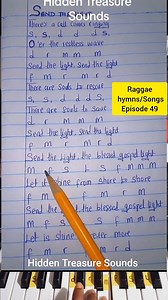 Hidden Treasure
Sounds
SEND THE
There's a call comes ringing
s, s, d d d s,
O'er the restless wave
d r m m d
Send the light, Send the light
f m r m r d
There are souls to rescue
s, s, d d d s,
There are souls to save
d r m m d
Send the light, Send the light
f m r m r d
Raggae
hymns/Songs
Episode 49
Send the light, the blessed gospel light
M f s s f m m m
Let it shine from shore to shore
f m r m r d
Send the light, the blessed gospel light
M f s s f m m m
Let it shine more
Hidden Treasure Sounds